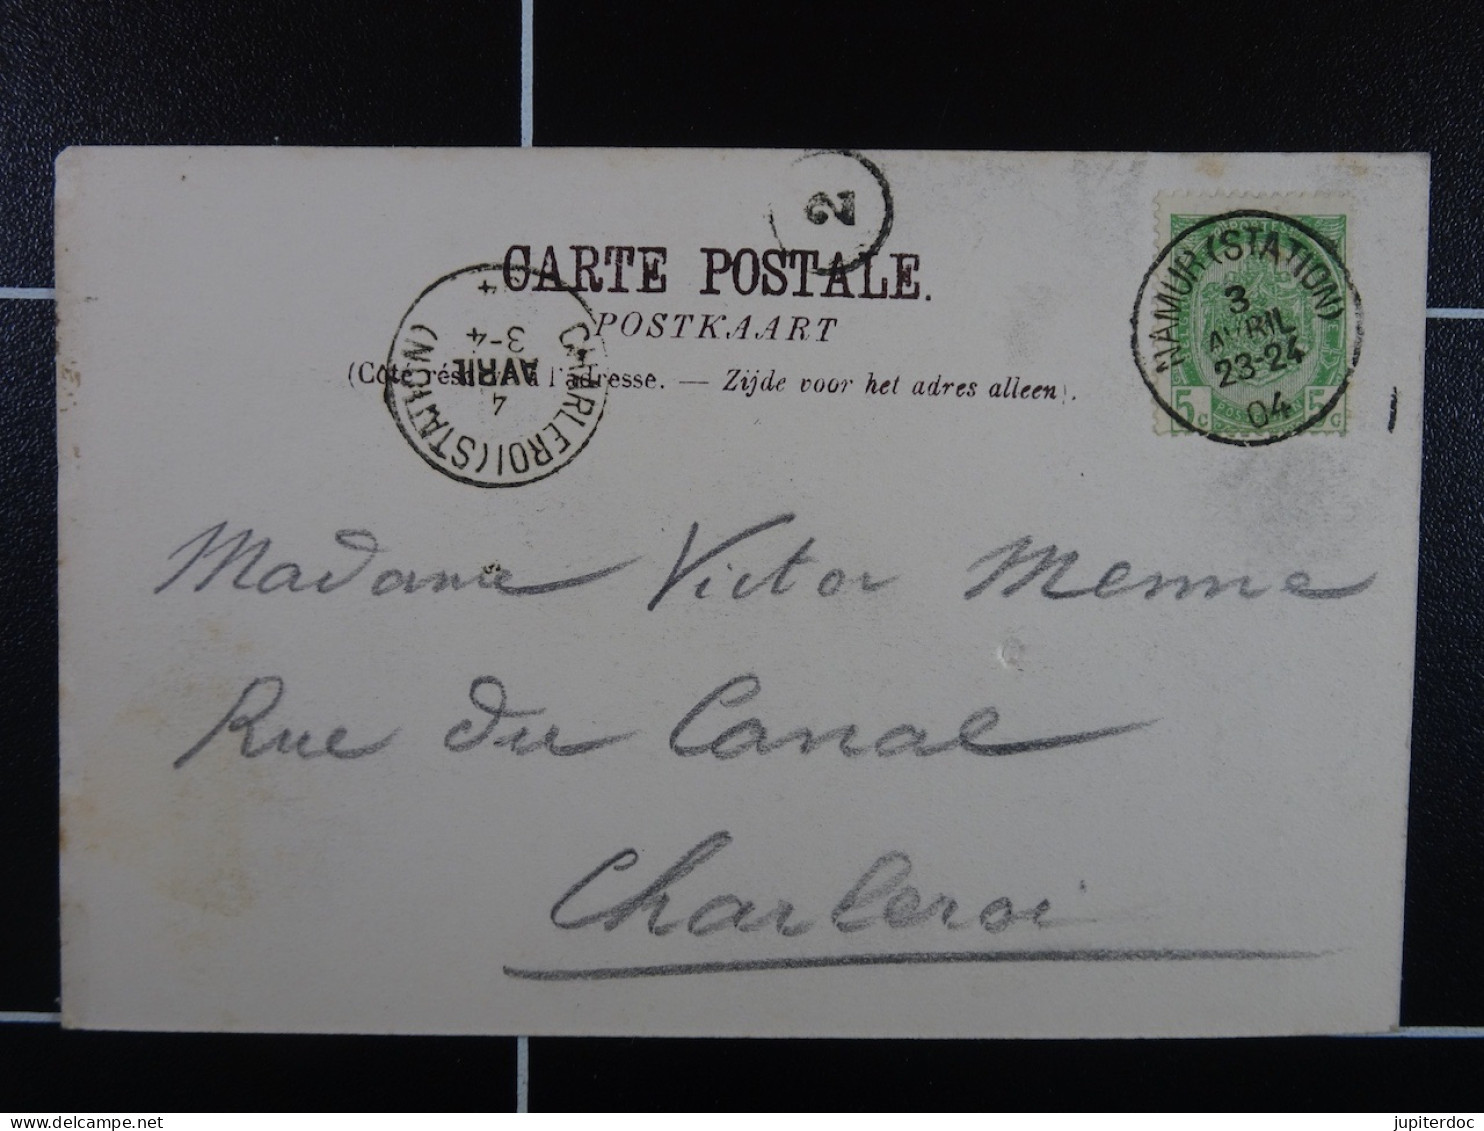 2
CARTE POSTALE.
POSTKAART
(Côté réservé à l'adresse. — Zijde voor het adres alleen).
NAMUR (STATION)
3
AVRIL
23-24
04
5c 5c
CHARLEROI (STATION)
4
AVRIL
3-4
Madame Victor Menne
Rue du Canal
Charleroi
delcampe.net
jupiterdoc